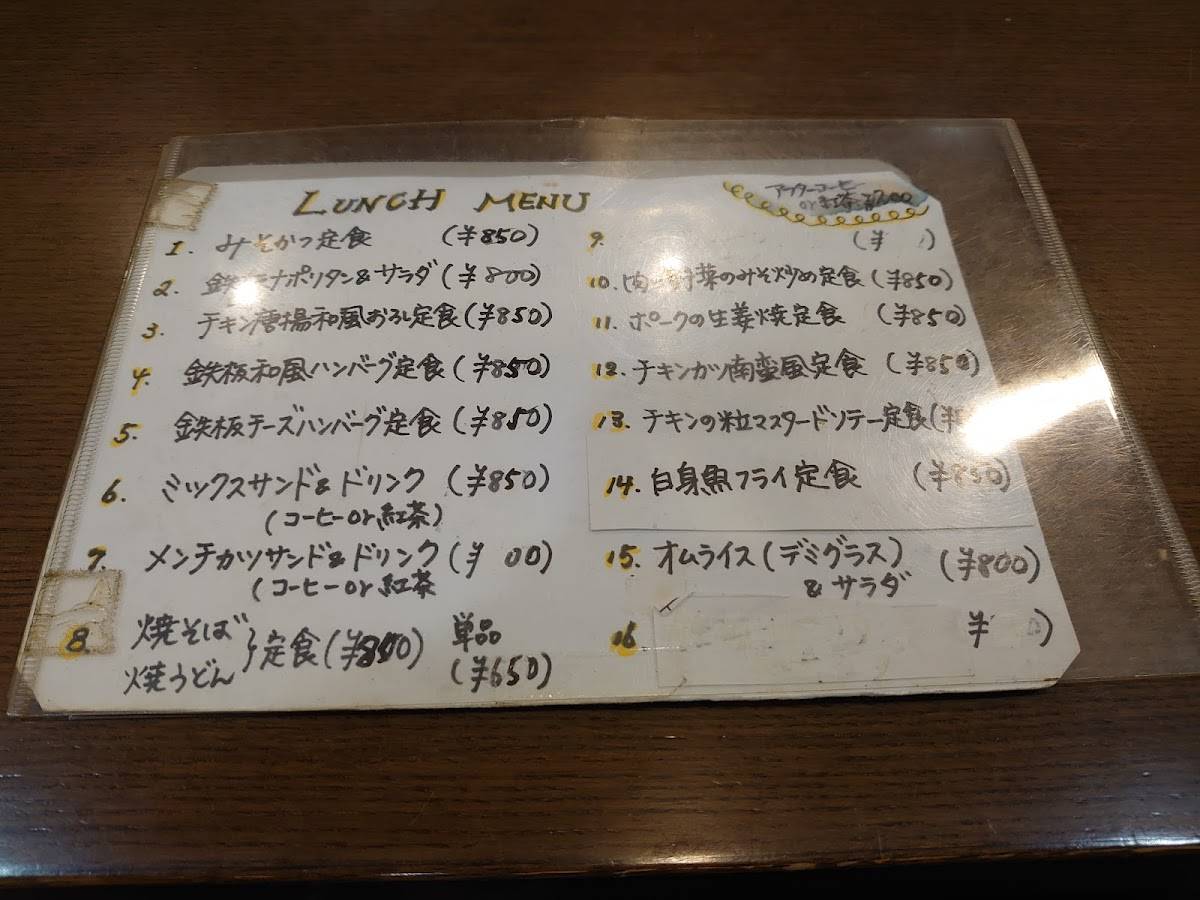 LUNCH MENU
アフターコーヒー
or 紅茶
1. みそかつ定食 (¥850)
2. 鉄 ナポリタン&サラダ (¥800)
3. チキン唐揚和風おろし定食 (¥850)
4. 鉄板和風ハンバーグ定食 (¥850)
5. 鉄板チーズハンバーグ定食 (¥850)
6. ミックスサンド&ドリンク (¥850)
(コーヒーor紅茶)
7. メンチカツサンド&ドリンク (¥ 00)
(コーヒーor紅茶
8. 焼そば
焼うどん
定食
単品
(¥650)
9. (¥ )
10. 肉 野菜のみそ炒め定食 (¥850)
11. ポークの生姜焼定食 (¥850)
12. チキンカツ南蛮風定食 (¥850)
13. チキンの粒マスタードソテー定食 (¥
14. 白身魚フライ定食 (¥850)
15. オムライス(デミグラス) (¥800)
& サラダ
16 ¥ )